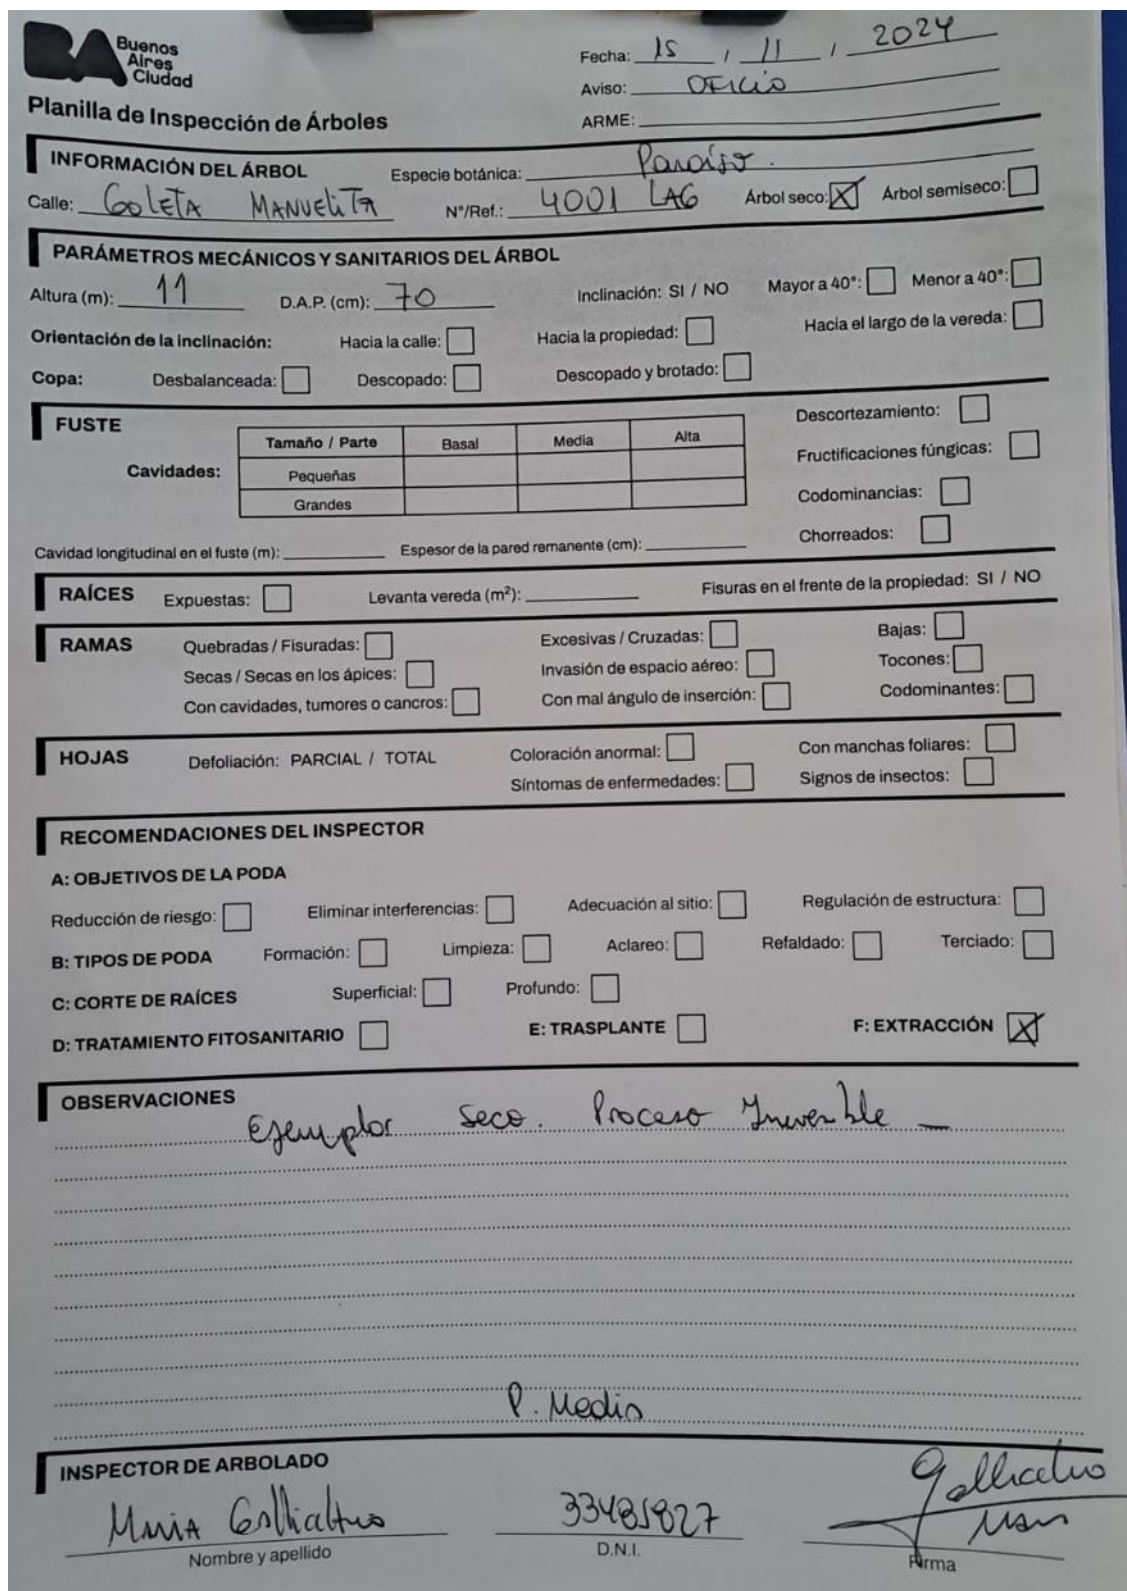 BA Buenos
Aires
Ciudad
Fecha: 15 / 11 / 2024
Aviso: OFICIO
Planilla de Inspección de Árboles
ARME:
INFORMACIÓN DEL ÁRBOL Especie botánica: Paraíso.
Calle: GOLETA MANUELITA N°/Ref.: 4001 LAG Árbol seco: X Árbol semiseco:
PARÁMETROS MECÁNICOS Y SANITARIOS DEL ÁRBOL
Altura (m): 11 D.A.P. (cm): 70 Inclinación: SI / NO Mayor a 40°: Menor a 40°:
Orientación de la inclinación: Hacia la calle: Hacia la propiedad: Hacia el largo de la vereda:
Copa: Desbalanceada: Descopado: Descopado y brotado:
FUSTE Descortezamiento:
Tamaño / Parte Basal Media Alta
Cavidades: Pequeñas Fructificaciones fúngicas:
Grandes Codominancias:
Chorreados:
Cavidad longitudinal en el fuste (m): Espesor de la pared remanente (cm):
RAÍCES Expuestas: Levanta vereda (m²): Fisuras en el frente de la propiedad: SI / NO
RAMAS Quebradas / Fisuradas: Excesivas / Cruzadas: Bajas:
Secas / Secas en los ápices: Invasión de espacio aéreo: Tocones:
Con cavidades, tumores o cancros: Con mal ángulo de inserción: Codominantes:
HOJAS Defoliación: PARCIAL / TOTAL Coloración anormal: Con manchas foliares:
Síntomas de enfermedades: Signos de insectos:
RECOMENDACIONES DEL INSPECTOR
A: OBJETIVOS DE LA PODA
Reducción de riesgo: Eliminar interferencias: Adecuación al sitio: Regulación de estructura:
B: TIPOS DE PODA Formación: Limpieza: Aclareo: Refaldado: Terciado:
C: CORTE DE RAÍCES Superficial: Profundo:
D: TRATAMIENTO FITOSANITARIO E: TRASPLANTE F: EXTRACCIÓN X
OBSERVACIONES
Ejemplar seco. Proceso Irreversible
P. Medio
INSPECTOR DE ARBOLADO
Maria 33485827
Nombre y apellido D.N.I. Firma